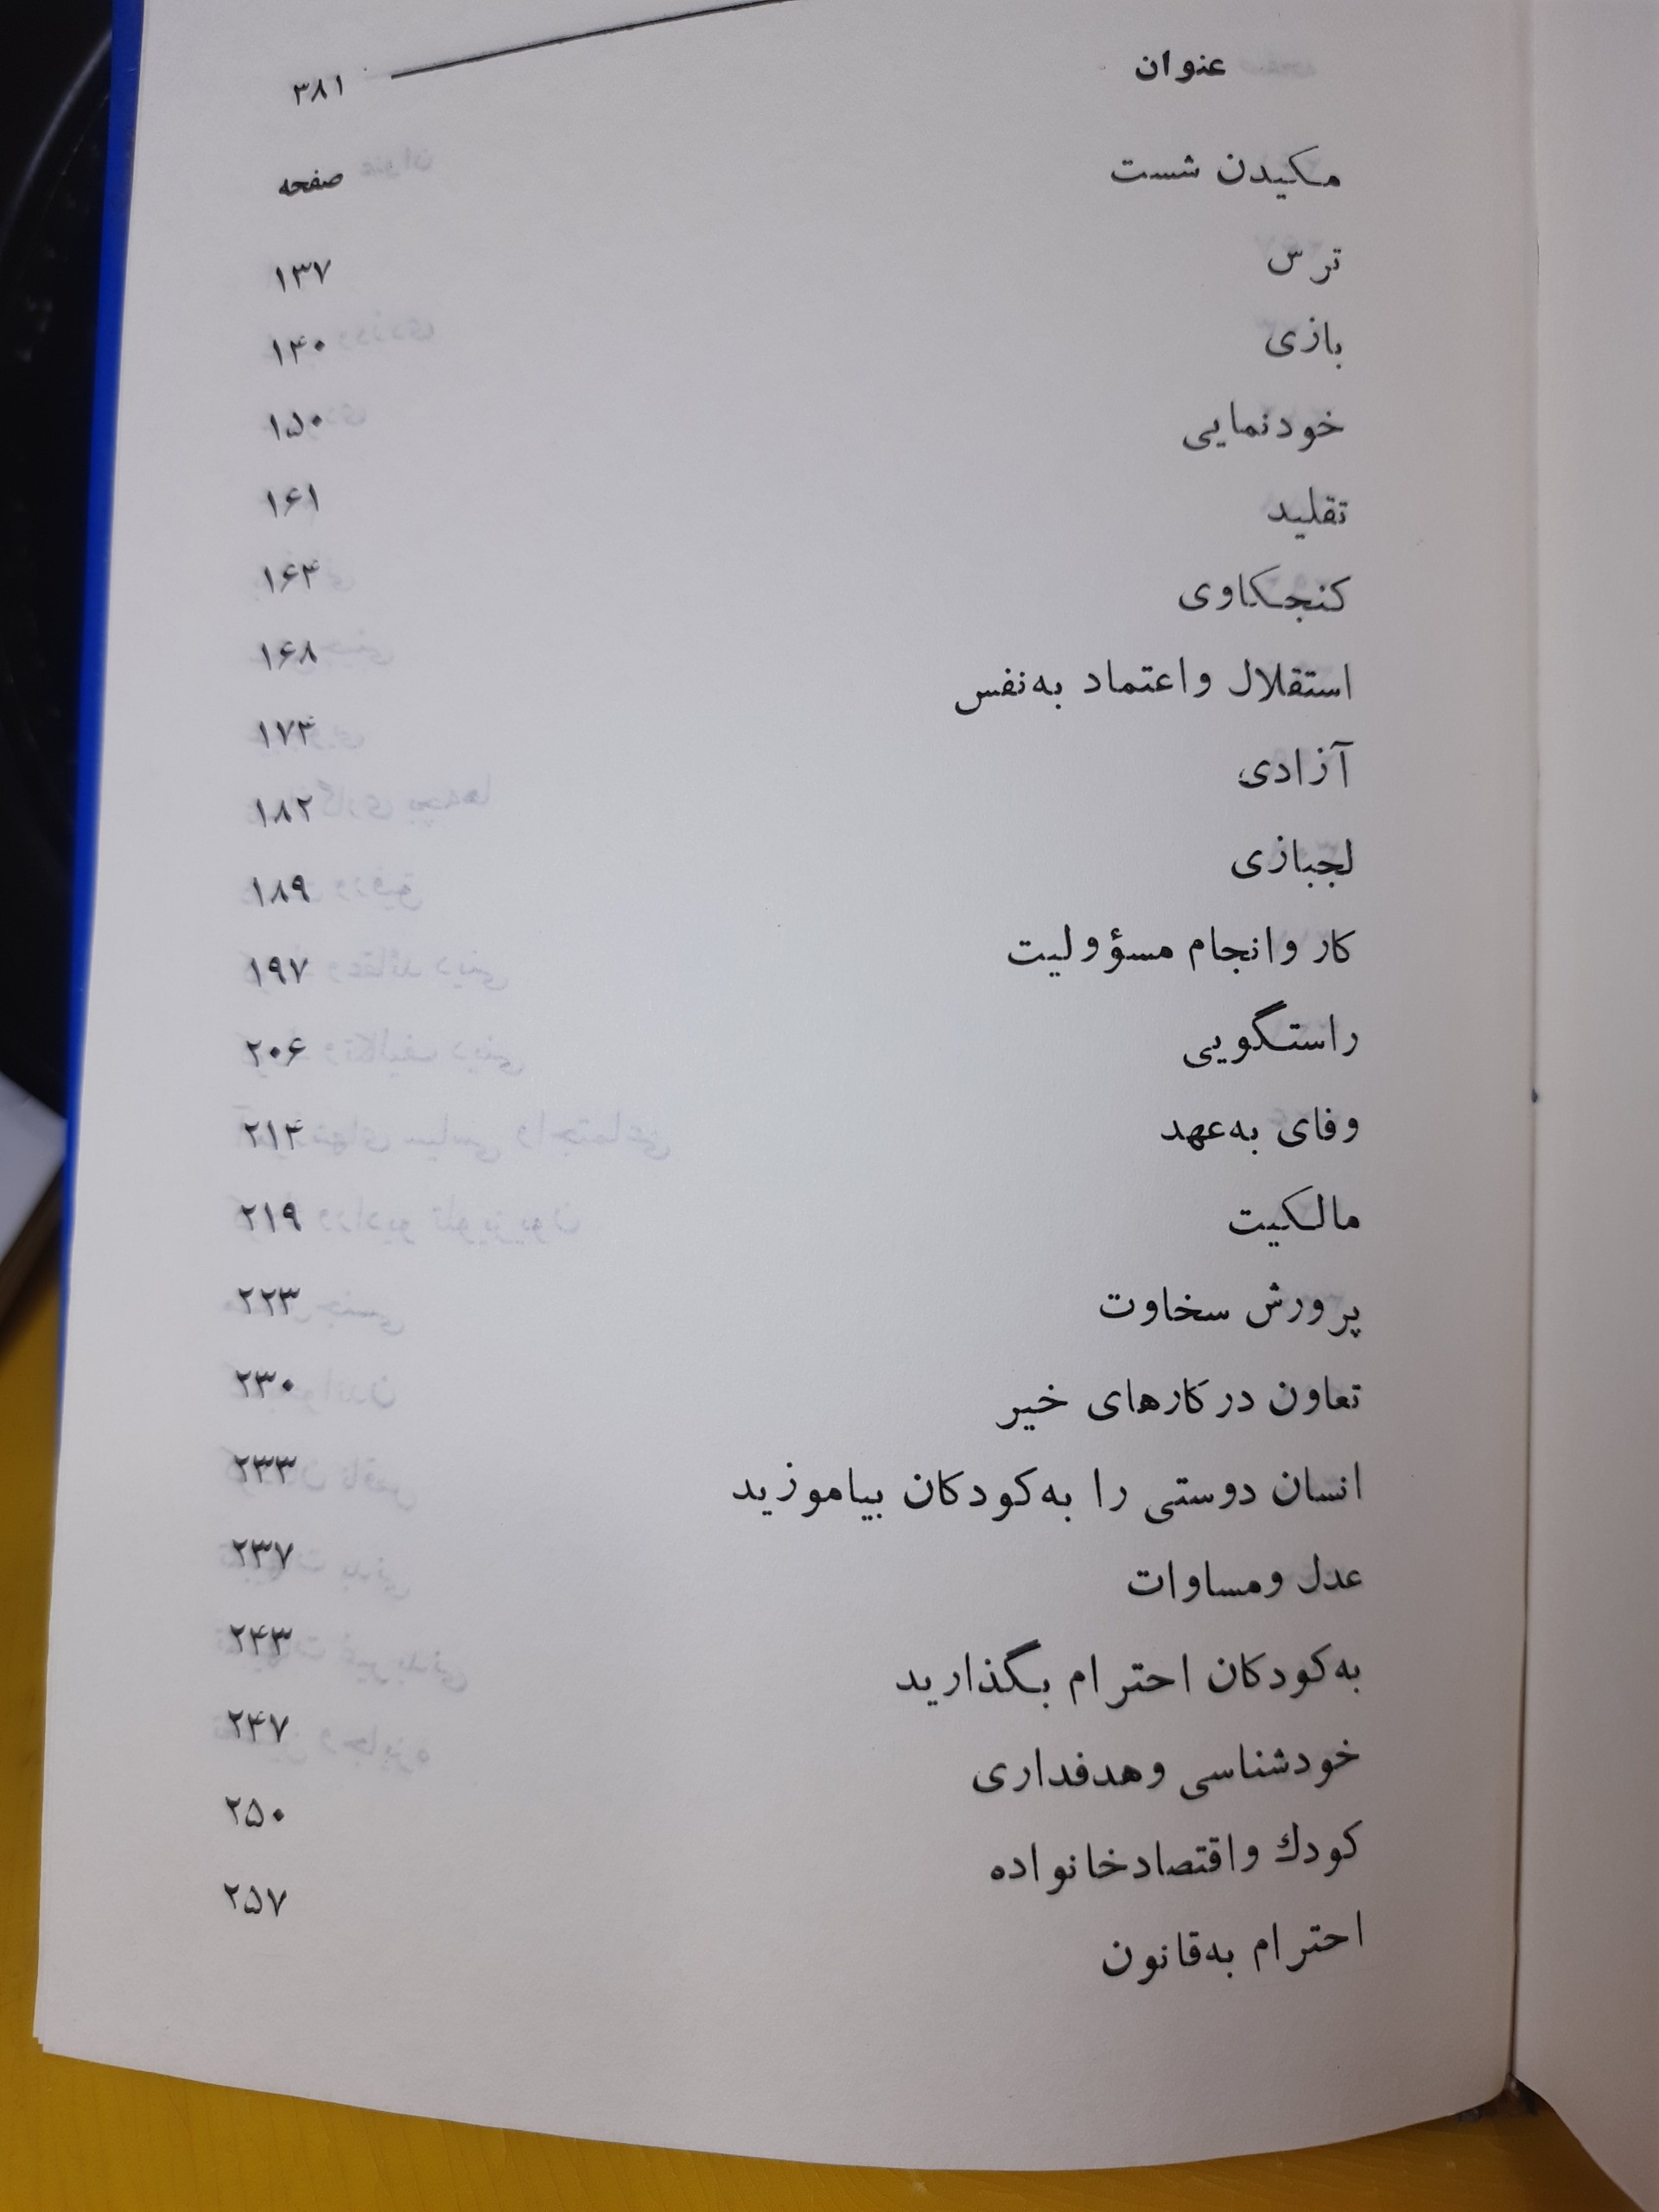 ۳۸۱
عنوان صفحه
مکیدن شست ۱۳۷
ترس ۱۴۰
بازی ۱۵۰
خودنمایی ۱۶۱
تقلید ۱۶۴
کنجکاوی ۱۶۸
استقلال و اعتماد به‌نفس ۱۷۴
آزادی ۱۸۲
لجبازی ۱۸۹
کار و انجام مسؤولیت ۱۹۷
راستگویی ۲۰۶
وفای به‌عهد ۲۱۴
مالکیت ۲۱۹
پرورش سخاوت ۲۲۳
تعاون در کارهای خیر ۲۳۰
انسان دوستی را به‌کودکان بیاموزید ۲۳۳
عدل و مساوات ۲۳۷
به‌کودکان احترام بگذارید ۲۴۳
خودشناسی و هدفداری ۲۴۷
کودك و اقتصاد خانواده ۲۵۰
احترام به‌قانون ۲۵۷